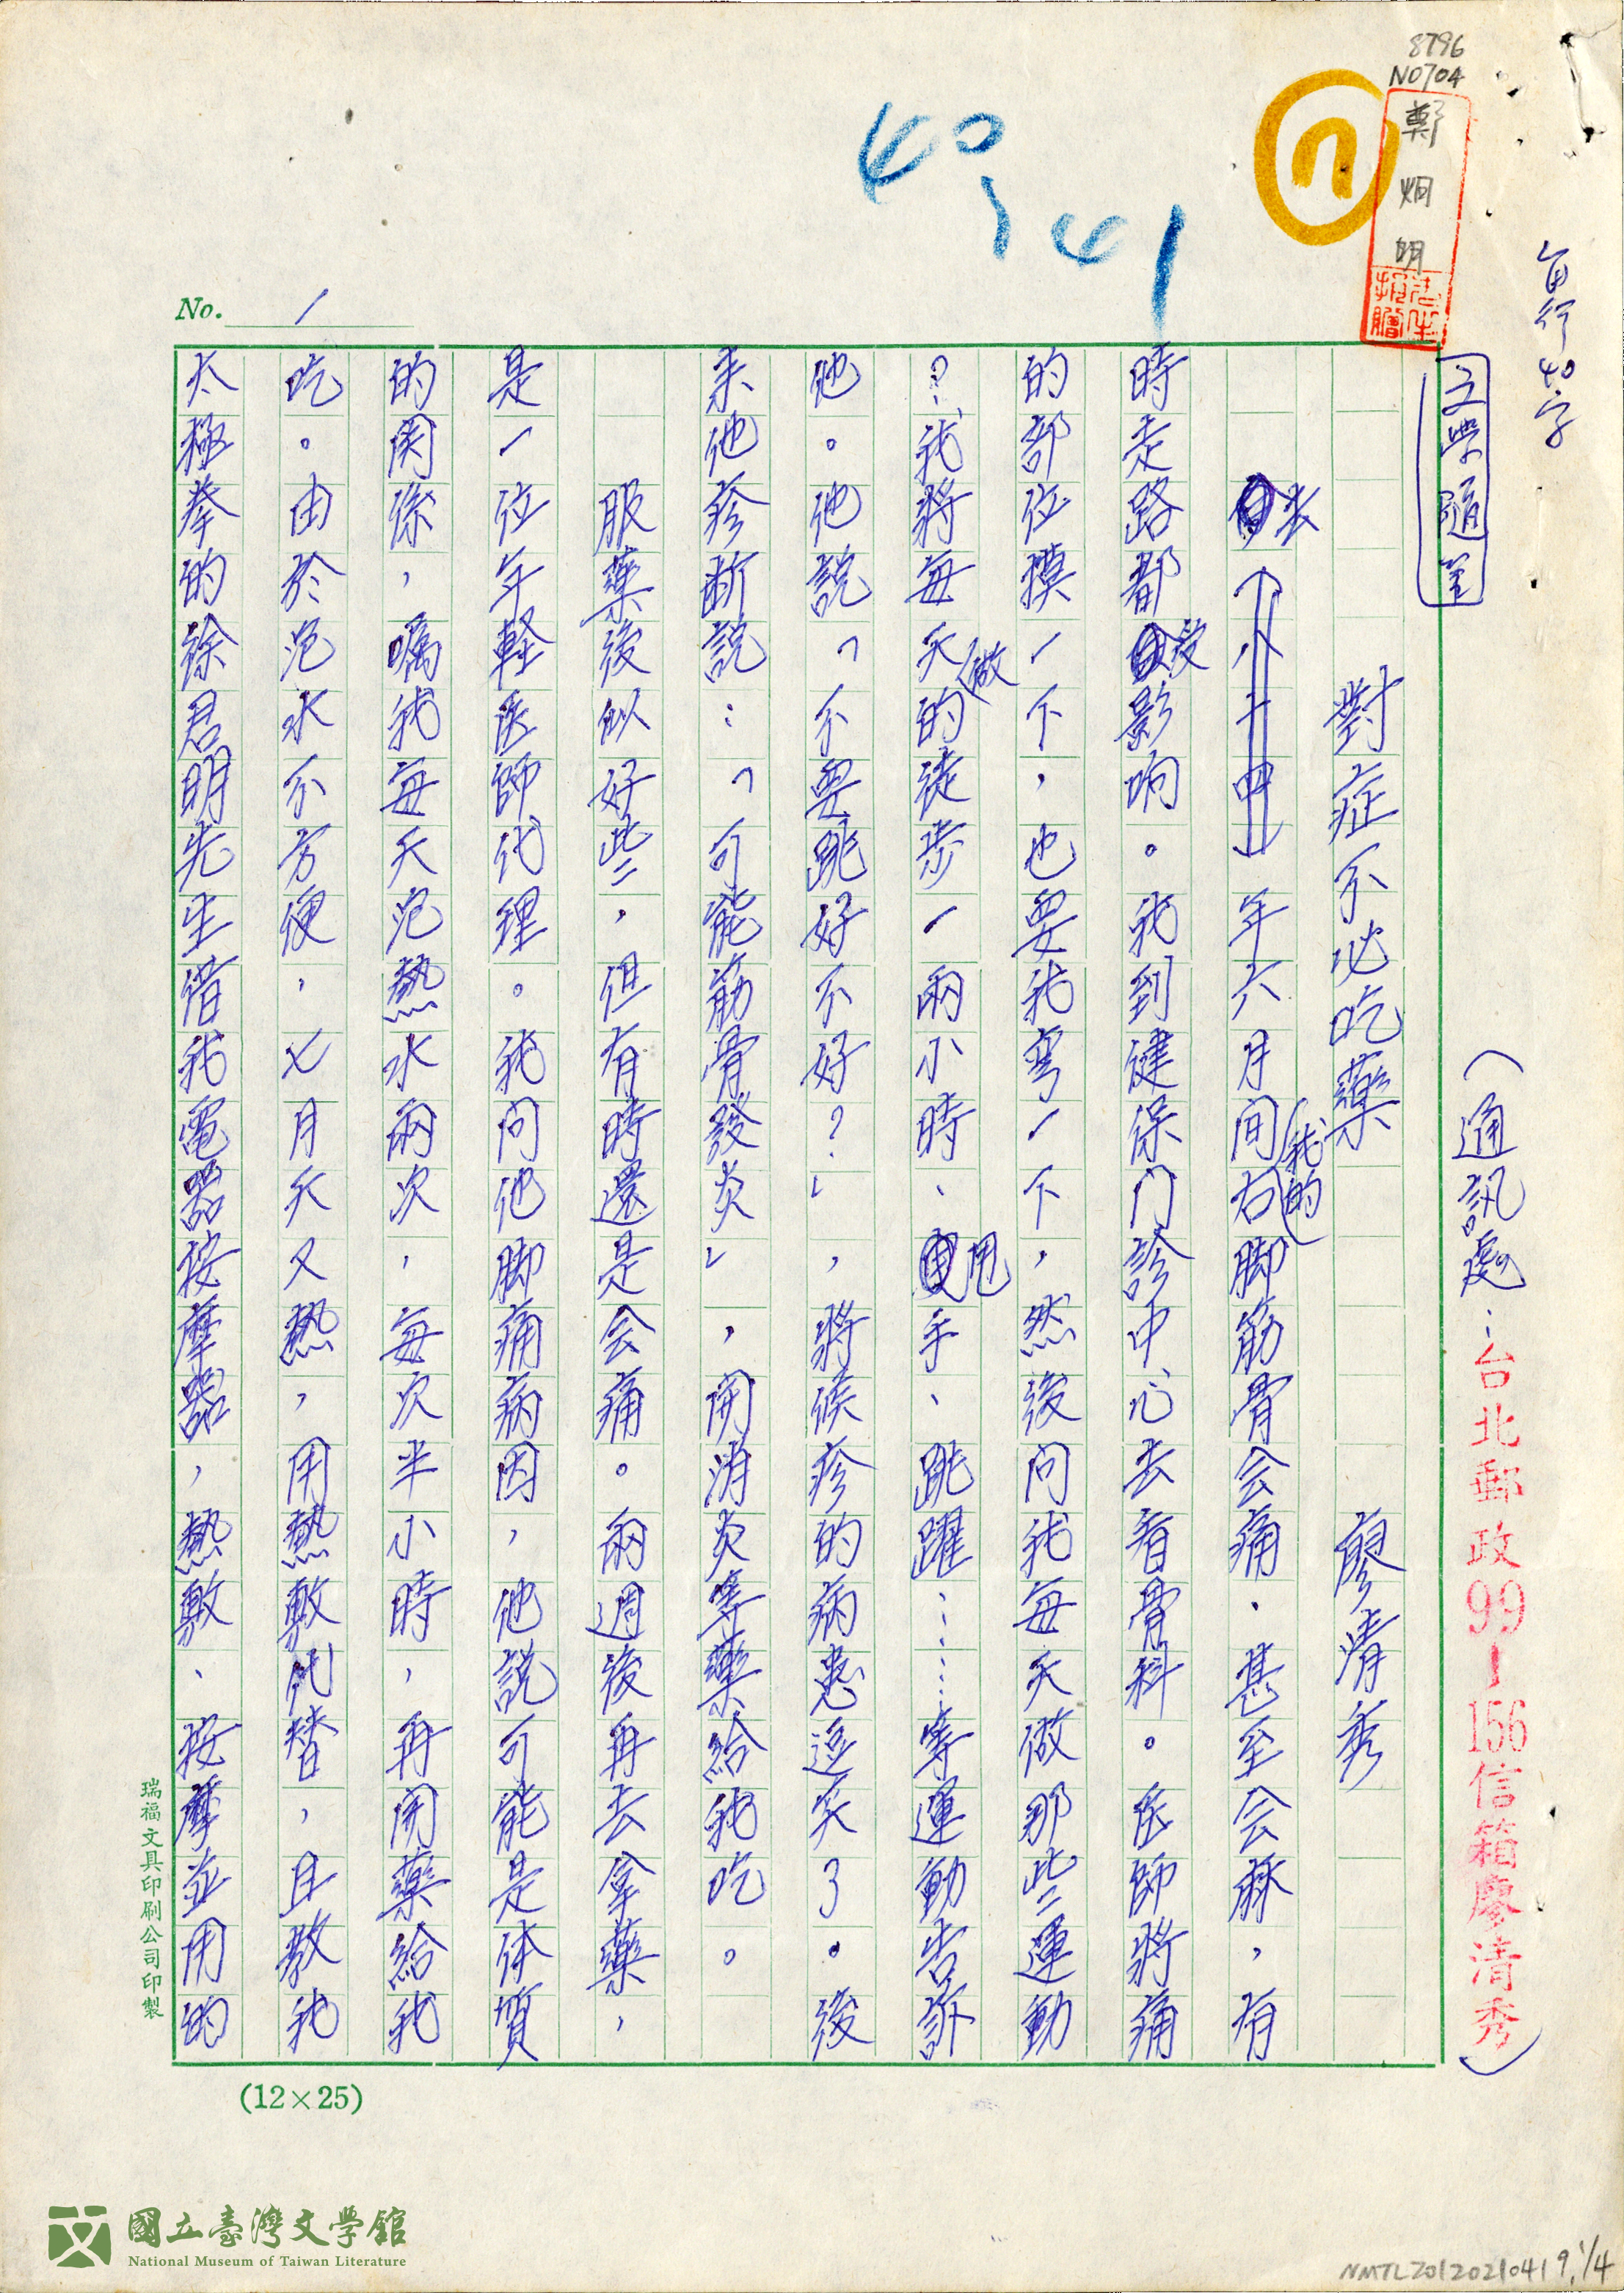 8796
NO704
鄭烱明
40、41
n
每行40字
文學隨筆
（通訊處：台北郵政99-156信箱廖清秀）
No. 1
對症不必吃藥　廖清秀
去（八十四）年六月間我的右脚筋骨会痛．甚至会麻，有
時走路都受影响。我到健保门診中心去看骨科。医師將痛
的部位摸一下，也要我弯一下，然後问我每天做那些運動
？我將每天做的徒步一兩小時、甩手、跳躍……等運動告訴
他。他說「不要跳好不好？」，將候疹的病患逗笑了。後
来他疹断說：「可能筋骨發炎」，開消炎等藥給我吃。
服藥後似好些，但有時還是会痛。兩週後再去拿藥，
是一位年軽医師代理。我问他脚痛病因，他說可能是体質
的関係，嘱我每天泡熱水兩次，每次半小時，再開藥給我
吃。由於泡水不方便，七月天又熱，用熱敷代替，且教我
太極拳的徐君明先生借我電器按摩器，熱敷、按摩並用的
瑞福文具印刷公司印製
(12×25)
國立臺灣文學館
National Museum of Taiwan Literature
NMTL20120210419,1/4